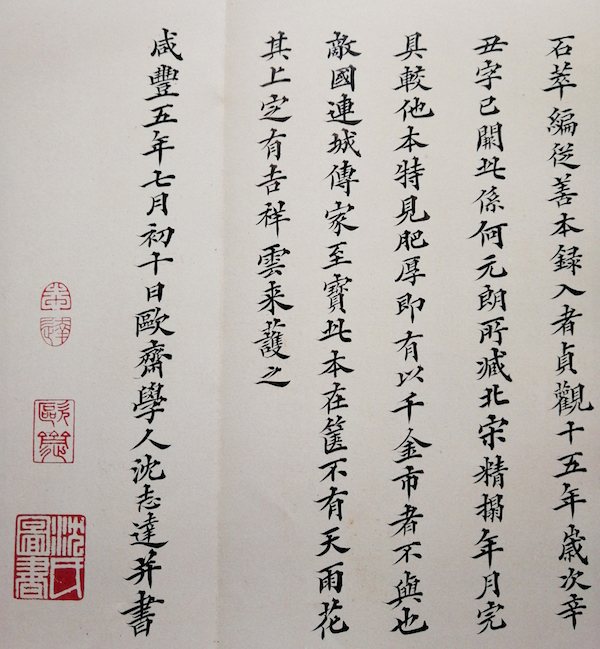 石萃編従善本録入者貞觀十五年歲次辛
丑字已開此係何元朗所藏北宋精搨年月完
具較他本特見肥厚即有以千金市者不與也
敵國連城傳家至寶此本在篋不有天雨花
其上定有吉祥雲来護之
咸豐五年七月初十日歐齋學人沈志達并書
志達
歐齋
沈氏圖書